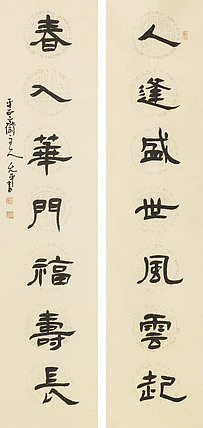 人逢盛世風雲起
春入華門福壽長